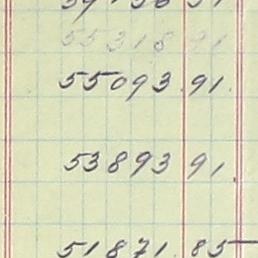 55318 91
55093.91
53893 91.
51871.85